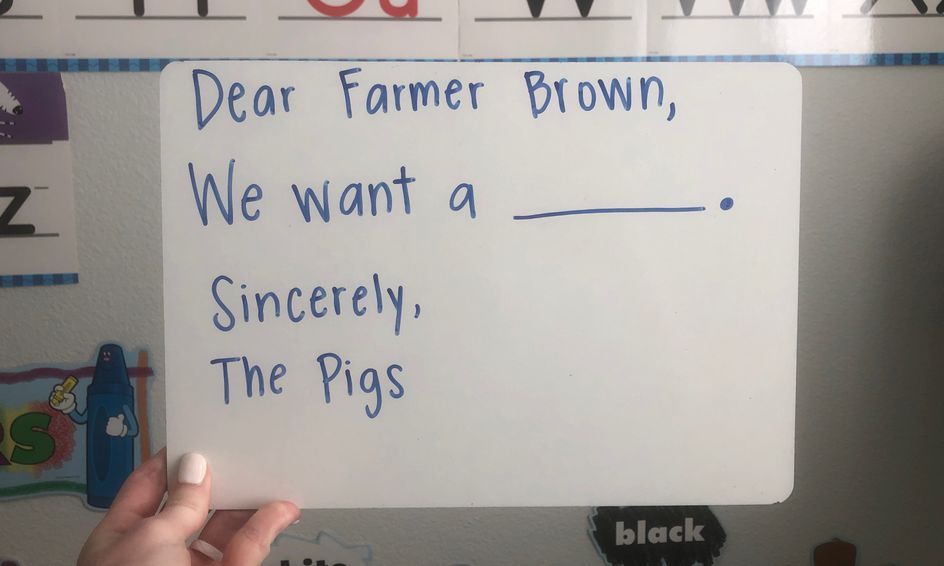 Dear Farmer Brown,
We want a ________.
Sincerely,
The Pigs
Z
black